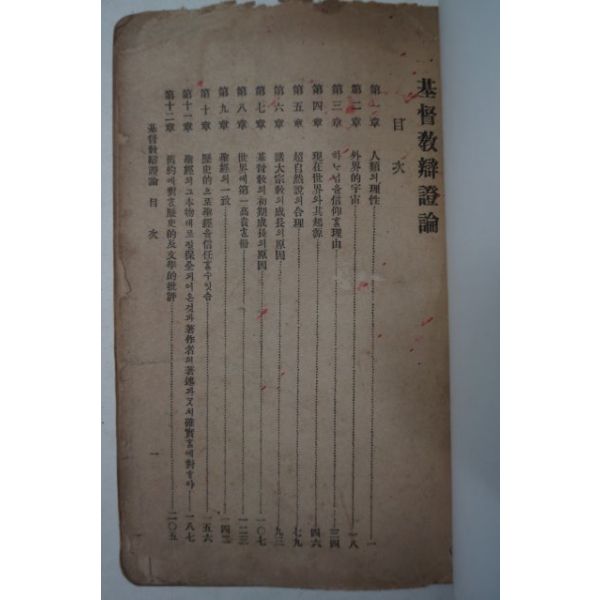 基督敎辯證論
目次
第一章 人類의理性 一
第二章 外界的宇宙 一八
第三章 하ᄂᆞ님을信仰ᄒᆞᆯ理由 三四
第四章 現在世界와其起源 四六
第五章 超自然說의合理 七九
第六章 諸大宗敎의成長의原因 九三
第七章 基督敎의初期成長의原因 一〇七
第八章 世界에第一高貴ᄒᆞᆫ冊 一二三
第九章 聖經의一致 一四二
第十章 歷史的으로聖經을信任ᄒᆞᆯ수잇슴 一五六
第十一章 聖經의그本物대로잘保全되여온것과著作者의著述과 確實ᄒᆞᆷ에對ᄒᆞ야 一八七
第十二章 舊約에對ᄒᆞᆫ歷史的及文學的批評 二〇五
基督敎辯證論 目次 一